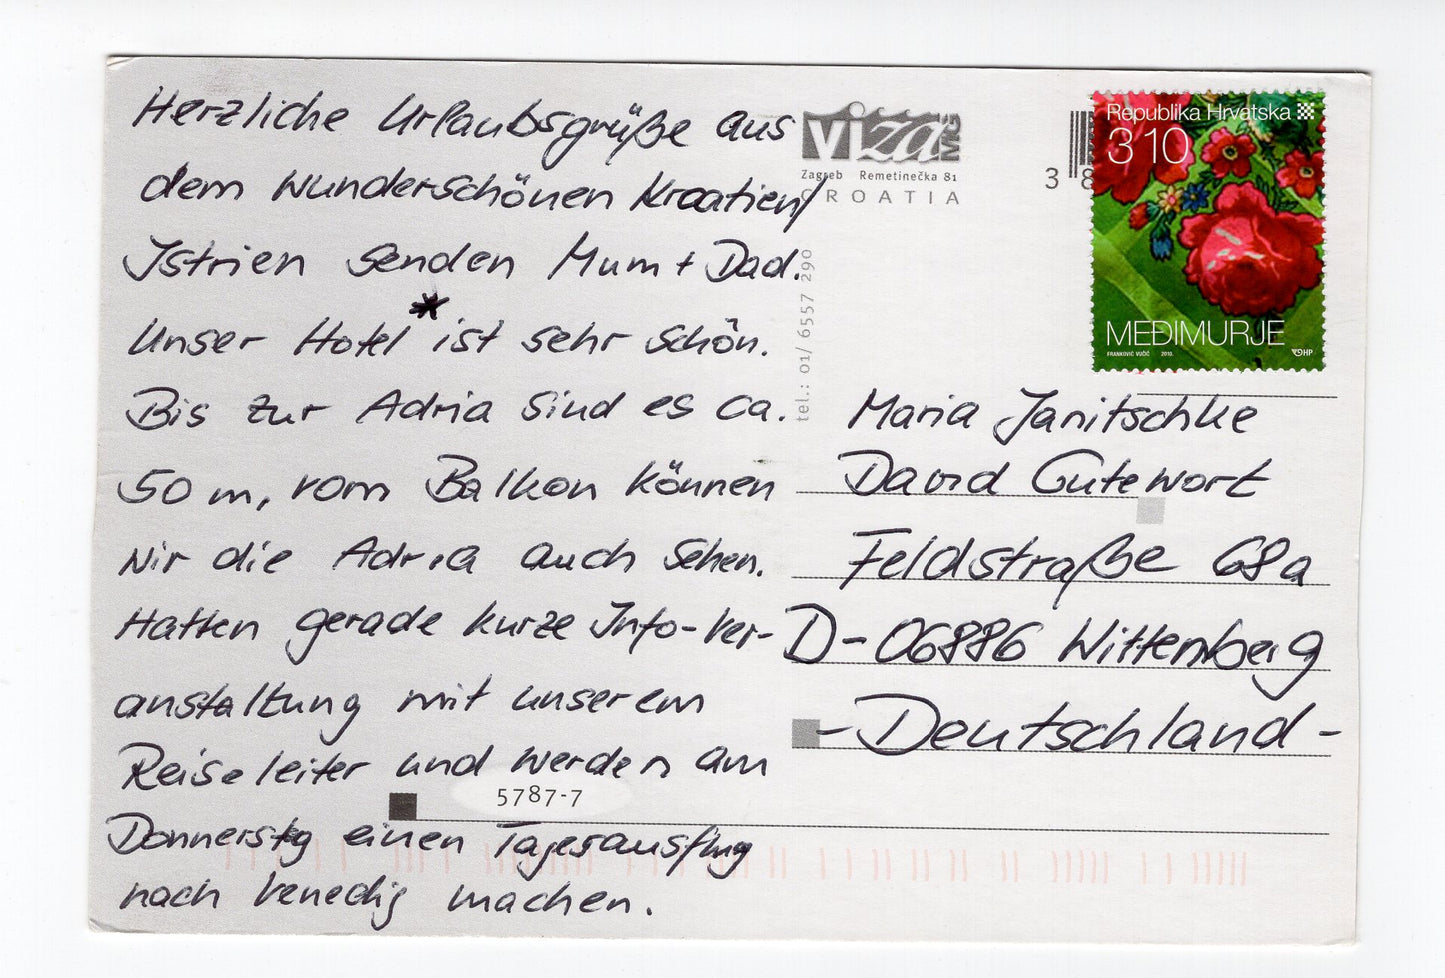 Herzliche Urlaubsgrüße aus
dem wunderschönen Kroatien/
Istrien senden Mum + Dad.
*
Unser Hotel ist sehr schön.
Bis zur Adria sind es ca.
50 m, vom Balkon können
wir die Adria auch sehen.
Hatten gerade kurze Info-Ver-
anstaltung mit unserem
Reiseleiter und werden am
Donnerstg einen Tagesausflug
nach Venedig machen.
viza MG
Zagreb Remetinečka 81
CROATIA
tel.: 01/ 6557 290
3 8
Republika Hrvatska
3 10
MEĐIMURJE
FRANKOVIĆ VUČIĆ 2010. HP
Maria Janitschke
David Gutewort
Feldstraße 68a
D-06886 Wittenberg
- Deutschland -
5787-7